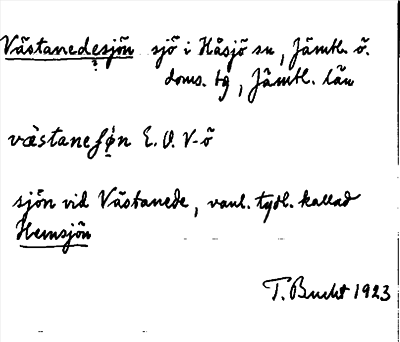 Västanedesjön sjö i Håsjö sn, Jämtl. ö.
doms. tg, Jämtl. län
?
västanesjǿn E. O. V-ö
sjön vid Västanede, vanl. tydl. kallad
Hemsjön
T. Bucht 1923